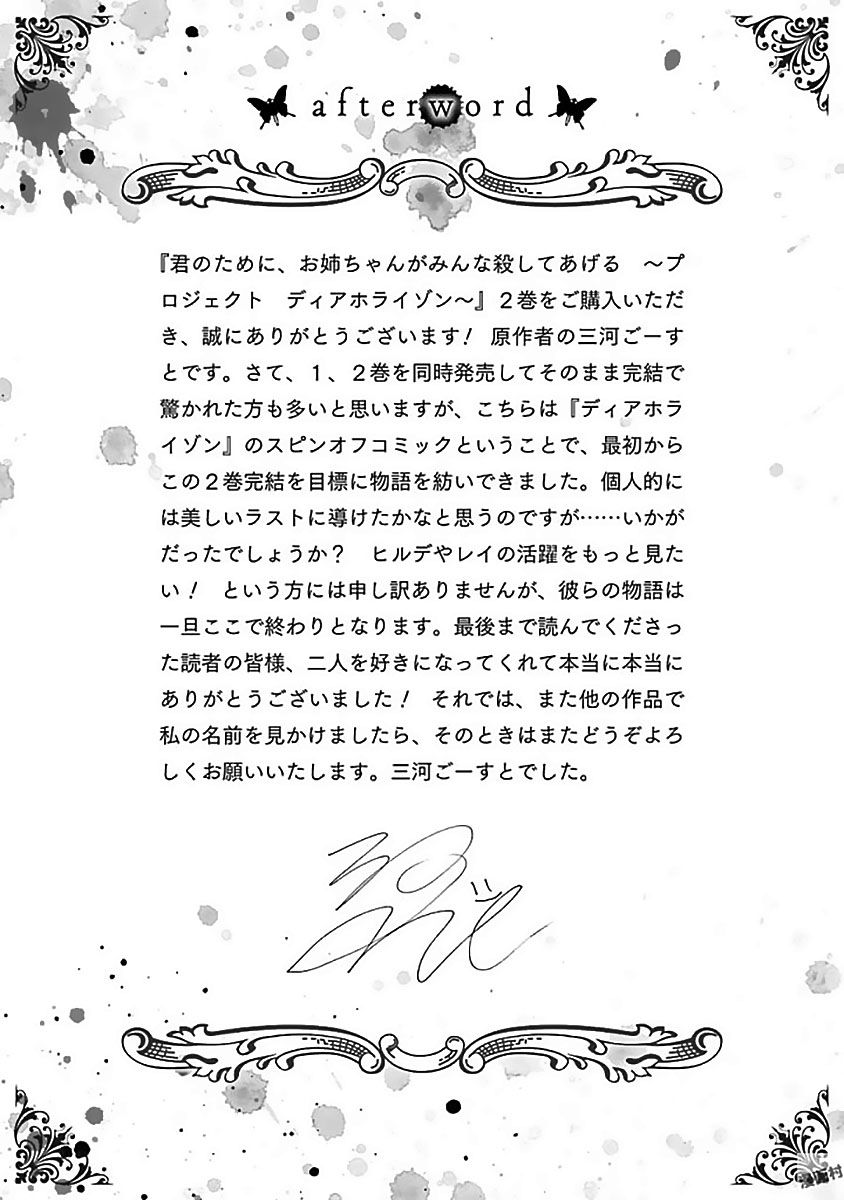 afterword
『君のために、お姉ちゃんがみんな殺してあげる　～プ
ロジェクト　ディアホライゾン～』２巻をご購入いただ
き、誠にありがとうございます！ 原作者の三河ごーす
とです。さて、１、２巻を同時発売してそのまま完結で
驚かれた方も多いと思いますが、こちらは『ディアホラ
イゾン』のスピンオフコミックということで、最初から
この２巻完結を目標に物語を紡いできました。個人的に
は美しいラストに導けたかなと思うのですが……いかが
だったでしょうか？　ヒルデやレイの活躍をもっと見た
い！　という方には申し訳ありませんが、彼らの物語は
一旦ここで終わりとなります。最後まで読んでくださっ
た読者の皆様、二人を好きになってくれて本当に本当に
ありがとうございました！　それでは、また他の作品で
私の名前を見かけましたら、そのときはまたどうぞよろ
しくお願いいたします。三河ごーすとでした。